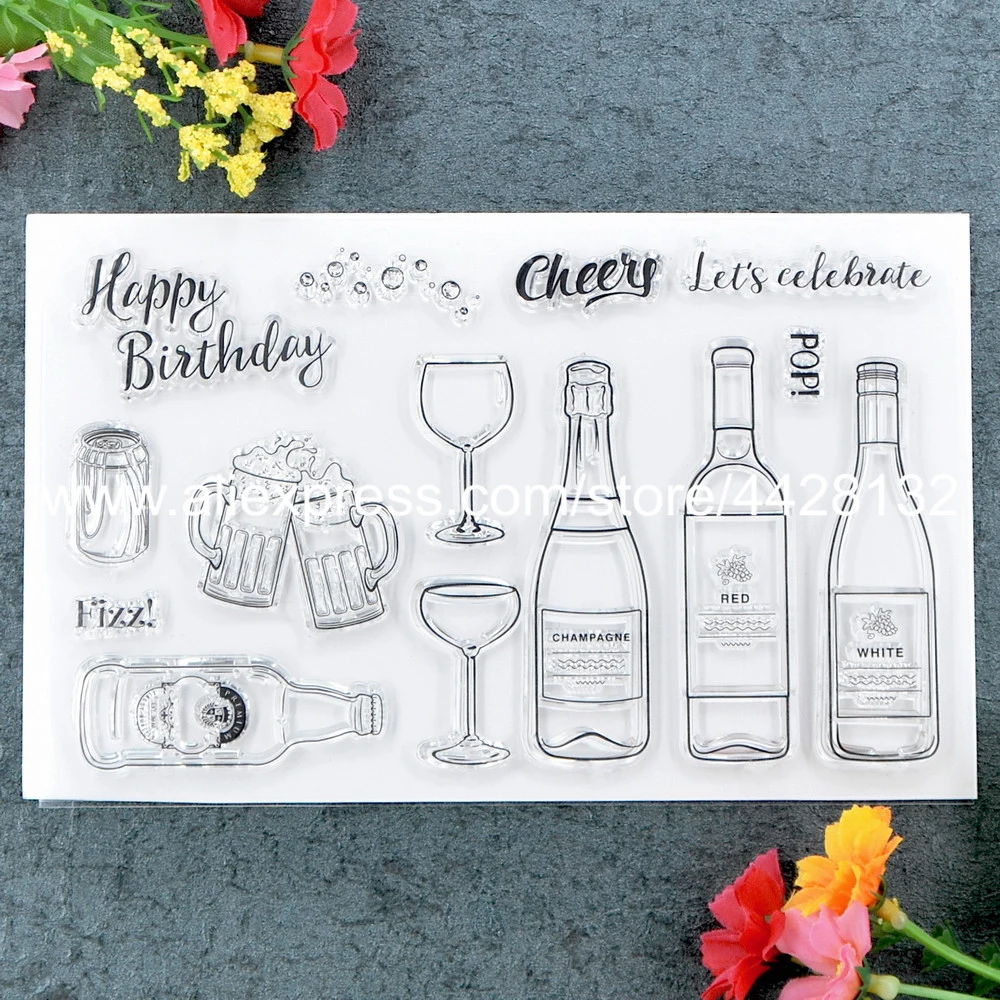 Happy
Birthday
Cheers
Let's celebrate
POP!
www.aliexpress.com/store/4428132
Fizz!
CHAMPAGNE
RED
WHITE
PREMIUM